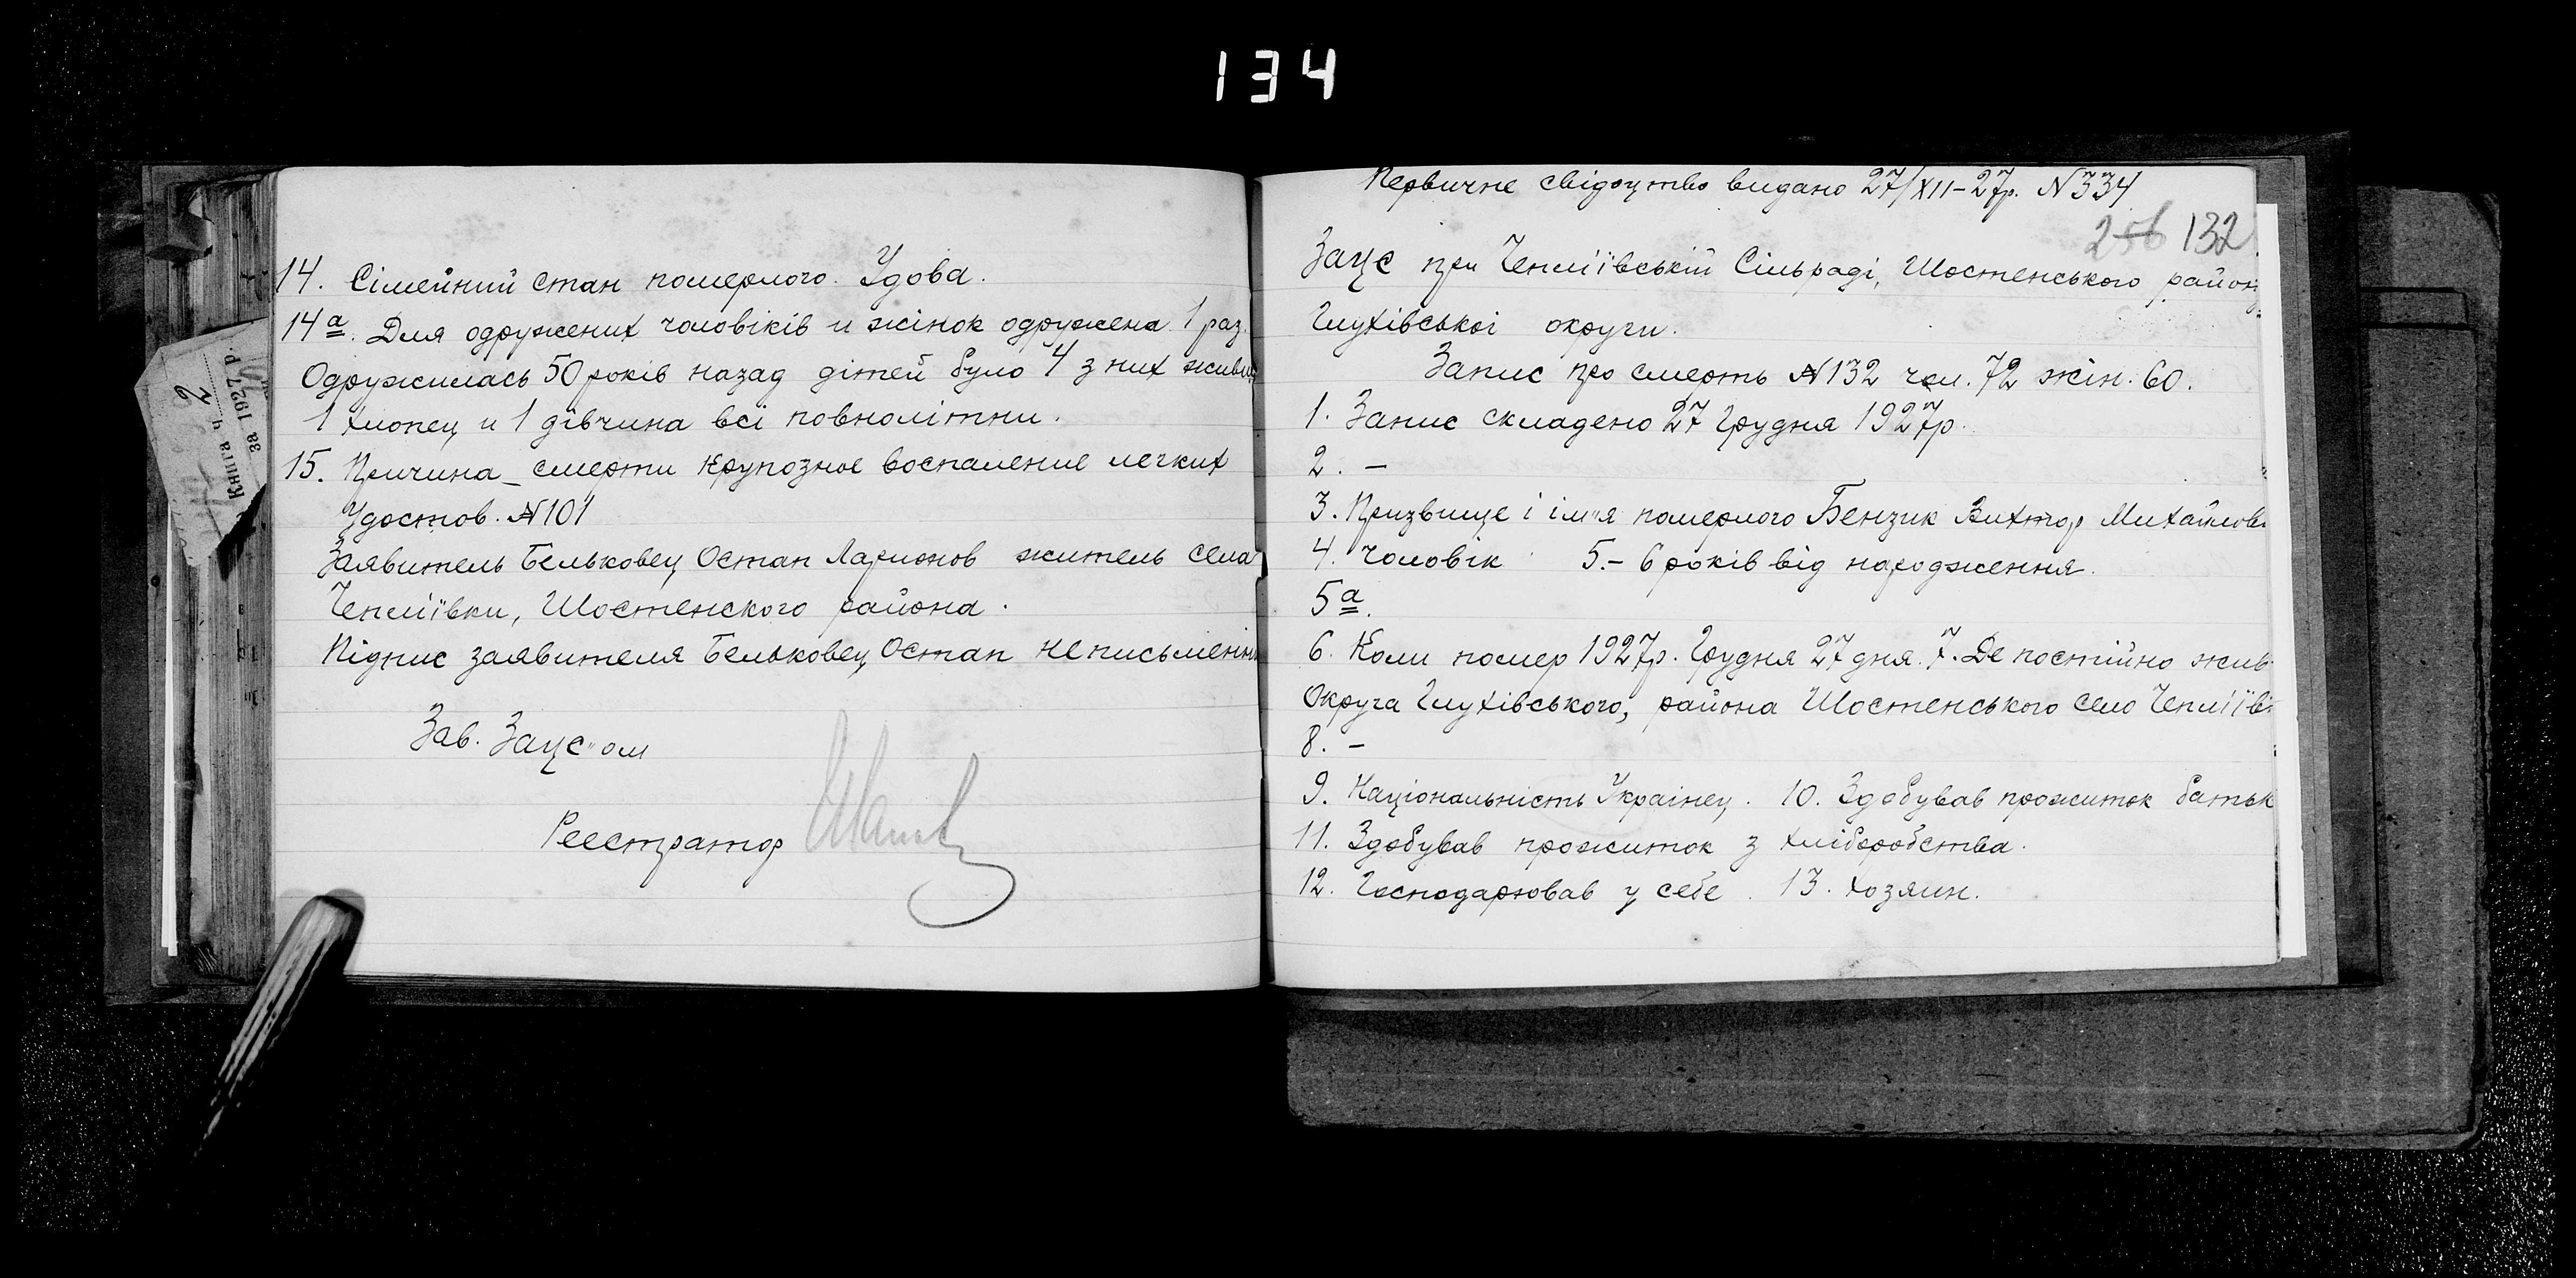 134
14. Сімейний стан померлого. Удова.
14а. Для одружених чоловіків и жінок одружена 1 раз.
Одружилась 50 років назад дітей було 4 з них живих
1 хлопец и 1 дівчина всі повнолітни.
15. Причина смерти Крупозное воспаление легких
Удостов. №101
Заявитель Бельковец Остап Ларионов житель села
Чепліївки, Шостенского района.
Підпис заявителя Бельковец Остап неписьменни
Зав. Загс"ом
Реестратор
Книга ч. 2
за 1927 р.
Первичне свідоцтво видано 27/XII-27р. №334
256 132
Загс при Чепліївській Сільраді, Шостенського району
Глухівської округи.
Запис про смерть №132 чол. 72 жін. 60.
1. Запис складено 27 Грудня 1927р.
2. –
3. Призвище і ім"я померлого Бензик Вихтор Михайлов
4. Чоловік 5.– 6 років від народження.
5а.
6. Коли помер 1927р. Грудня 27 дня. 7. Де постійно жив
Округа Глухівського, района Шостенського село Чепліїв
8. –
9. Національність Українец. 10. Здобував прожиток батьк
11. Здобував прожиток з хліборобства.
12. Господарював у себе. 13. хозяин.